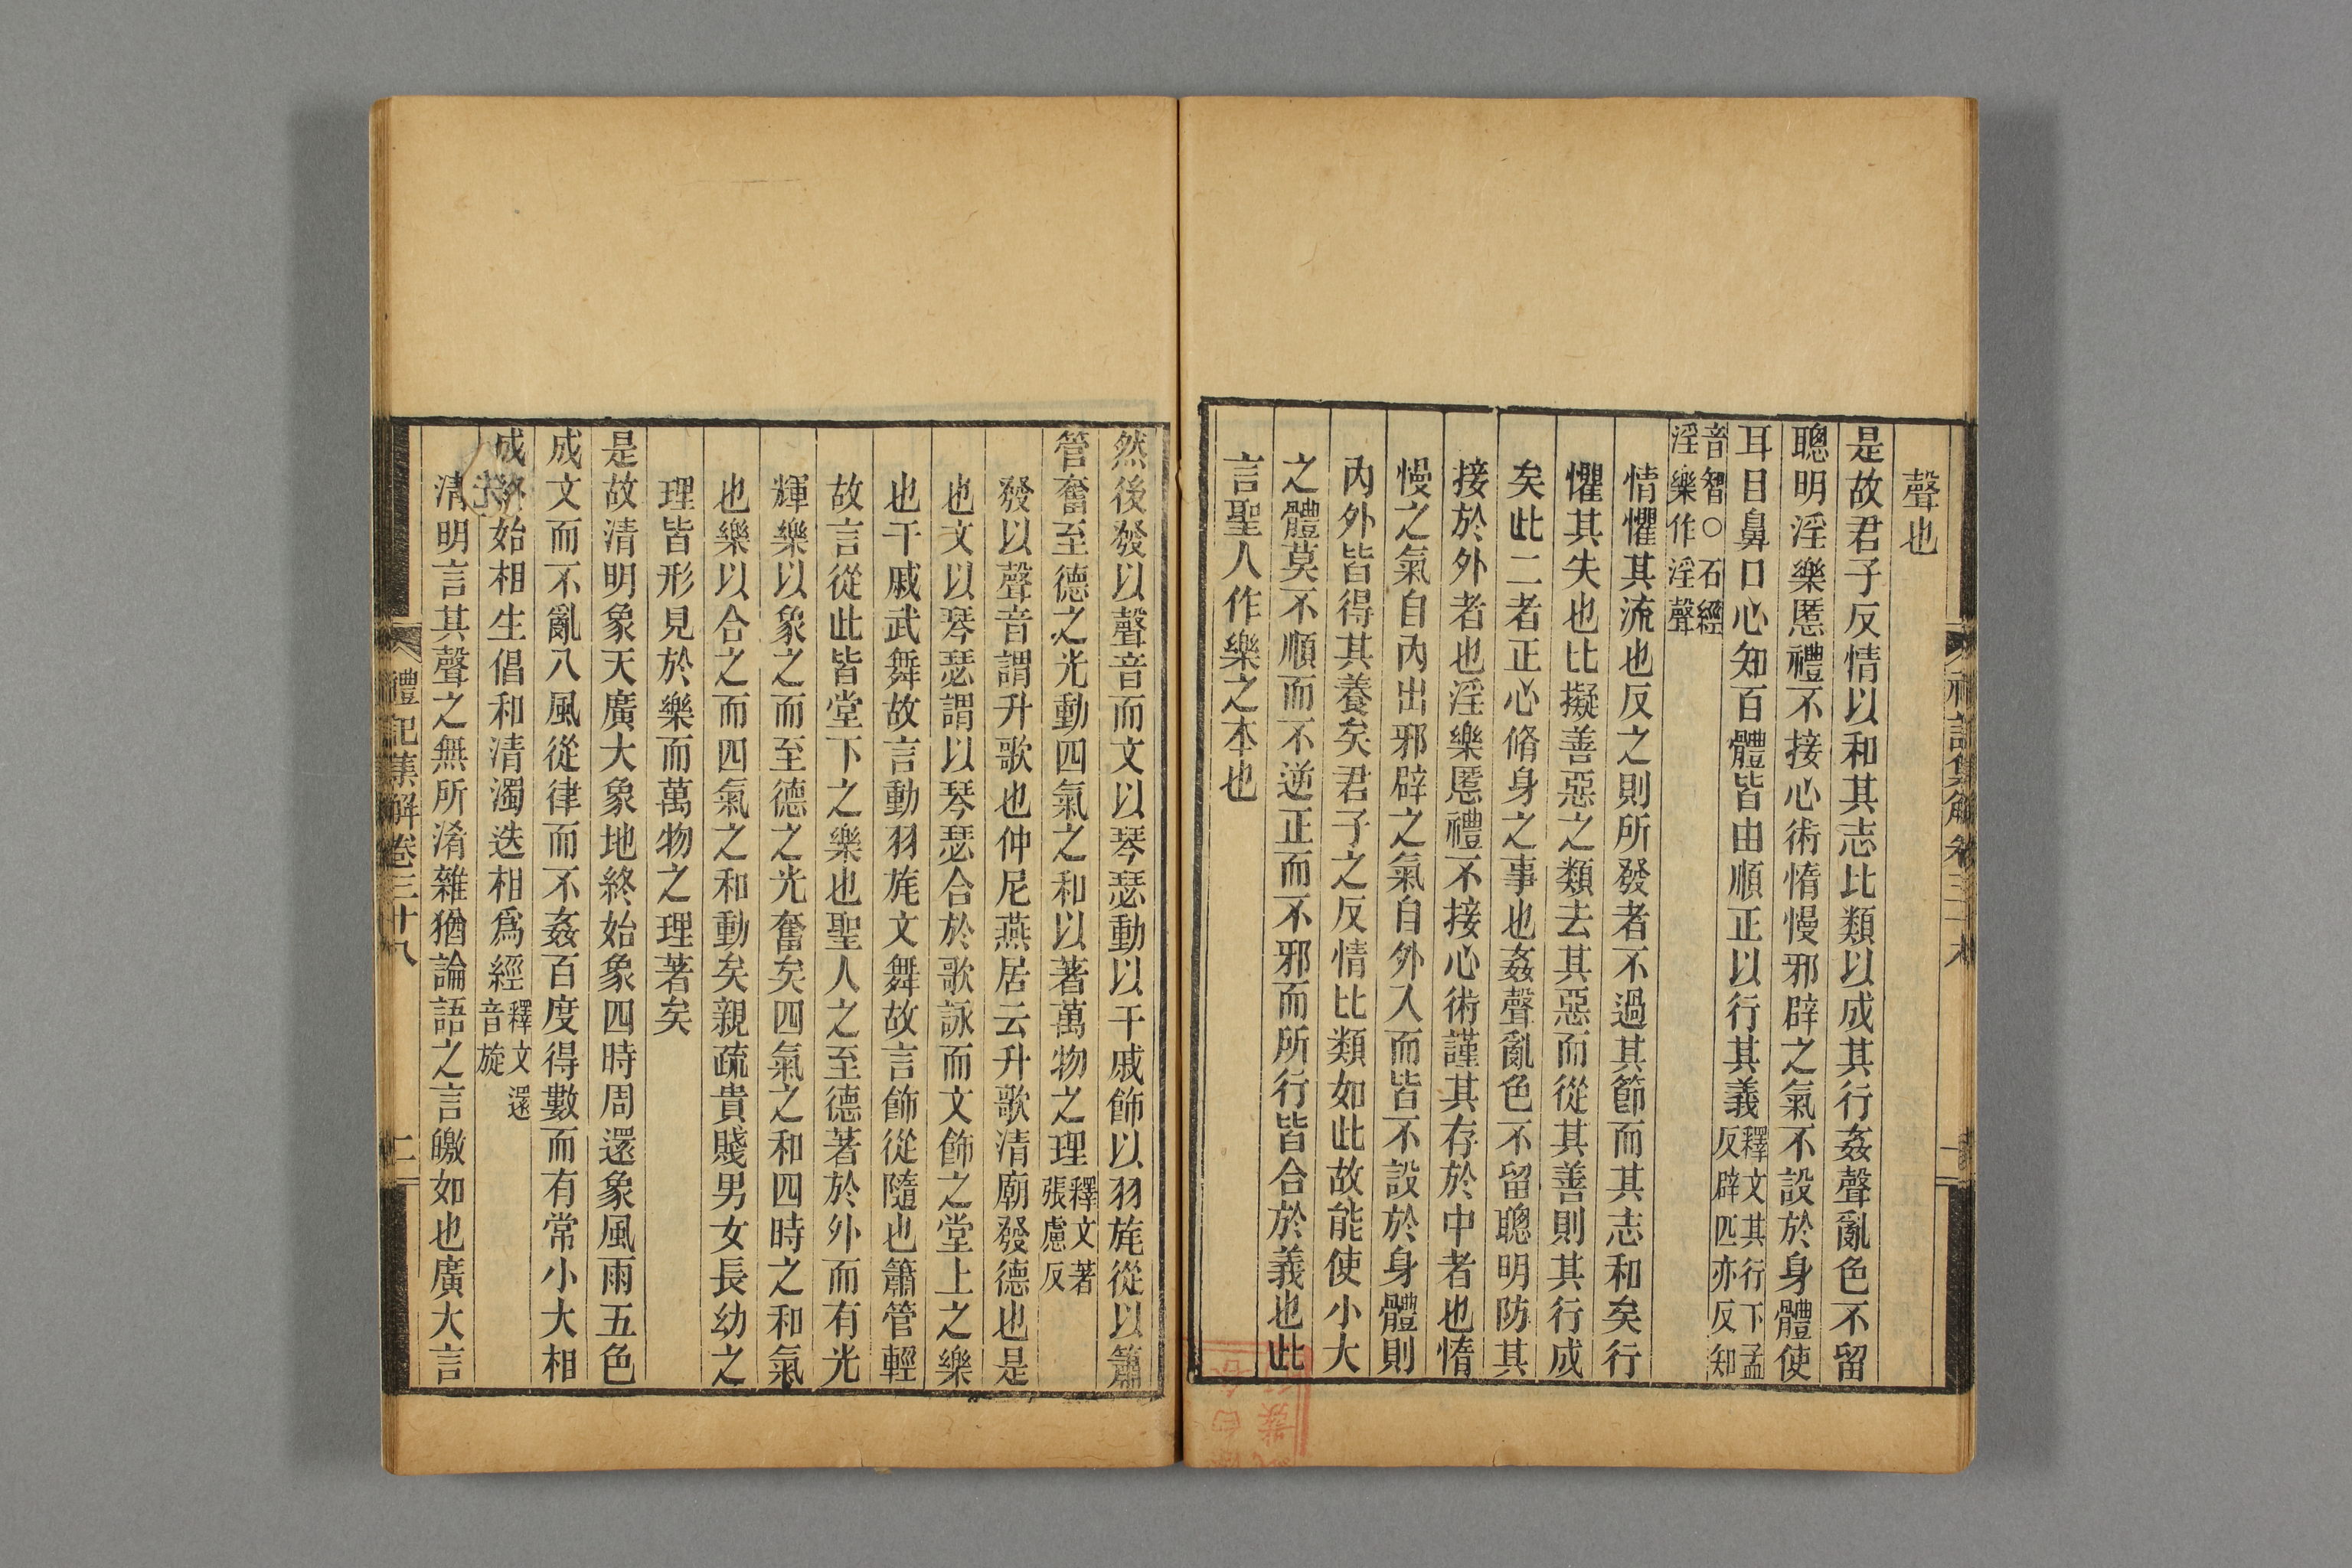 聲也
是故君子反情以和其志比類以成其行姦聲亂色不留
聰明淫樂慝禮不接心術惰慢邪辟之氣不設於身體使
耳目鼻口心知百體皆由順正以行其義釋文其行下孟反辟匹亦反知
音智○石經淫樂作淫聲
情懼其流也反之則所發者不過其節而其志和矣行
懼其失也比擬善惡之類去其惡而從其善則其行成
矣此二者正心脩身之事也姦聲亂色不留聰明防其
接於外者也淫樂慝禮不接心術謹其存於中者也惰
慢之氣自內出邪辟之氣自外入而皆不設於身體則
內外皆得其養矣君子之反情比類如此故能使小大
之體莫不順而不逆正而不邪而所行皆合於義也此
言聖人作樂之本也
然後發以聲音而文以琴瑟動以干戚飾以羽旄從以簫
管奮至德之光動四氣之和以著萬物之理釋文著張慮反
發以聲音謂升歌也仲尼燕居云升歌清廟發德也是
也文以琴瑟謂以琴瑟合於歌詠而文飾之堂上之樂
也干戚武舞故言動羽旄文舞故言飾從隨也簫管輕
故言從此皆堂下之樂也聖人之至德著於外而有光
輝樂以象之而至德之光奮矣四氣之和四時之和氣
也樂以合之而四氣之和動矣親疏貴賤男女長幼之
理皆形見於樂而萬物之理著矣
是故清明象天廣大象地終始象四時周還象風雨五色
成文而不亂八風從律而不姦百度得數而有常小大相
成終始相生倡和清濁迭相為經釋文還音旋
清明言其聲之無所淆雜猶論語之言皦如也廣大言
禮記集解卷三十八
二